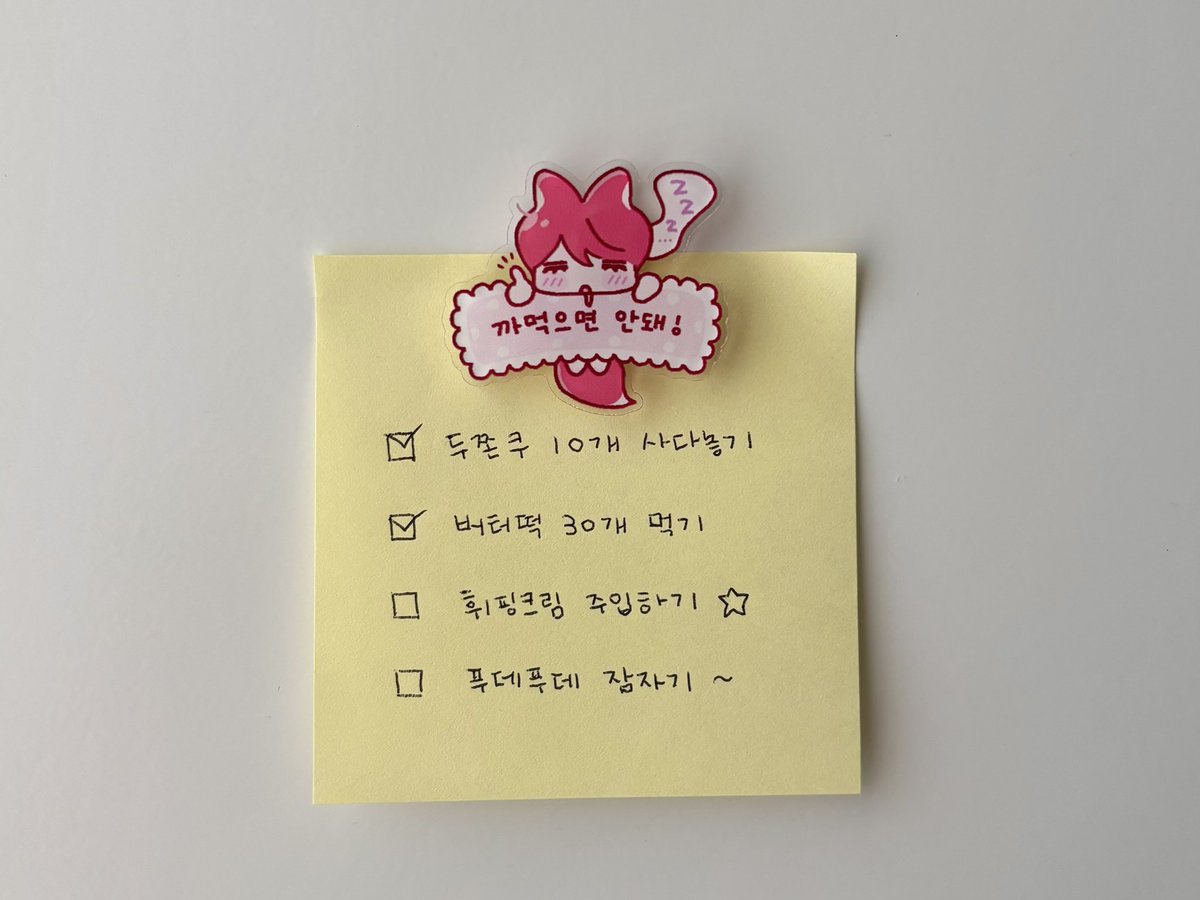 z
z
z
...
까먹으면 안돼!
두쫀쿠 10개 사다놓기
버터떡 30개 먹기
휘핑크림 주입하기 ☆
푸데푸데 잠자기 ~